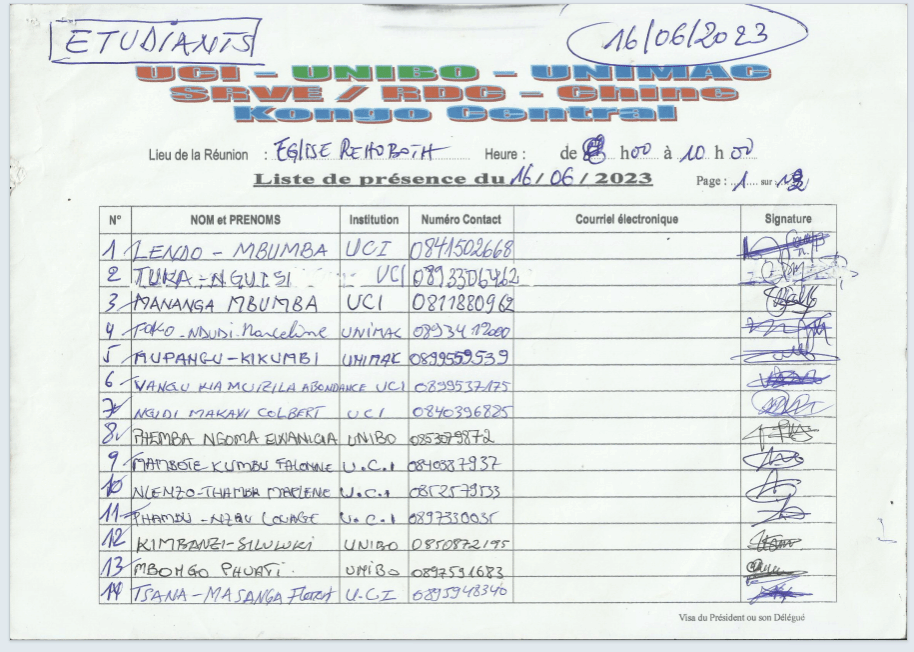 ETUDIANTS
16/06/2023
UCI – UNIBO – UNIMAC
SRVE / RDC – Chine
Kongo Central
Lieu de la Réunion : EGLISE REHOBOTH Heure : de h00 à 10 h 00
Liste de présence du 16 / 06 / 2023 Page : 1 sur :
N° NOM et PRENOMS Institution Numéro Contact Courriel électronique Signature
1 LENDO - MBUMBA UCI 0841502668
2 TUKA - NGUISI UCI
3 MANANGA MBUMBA UCI 0811880962
4 TOKO - NDUDI Marceline UNIMAC 0893412000
5 MUPANGU - KIKUMBI UNIMAC 0899559539
6 VANGU ABONDANCE UCI 0899537175
7 NGIDI MAKAYI COLBERT UCI 0840396825
8 PHEMBA NGOMA UNIBO 0853079872
9 MAMBOTE KUMBU FALONNE U.C.I 0840387937
10 NLENZO-THAMBA MARLENE U.C.I 0852579533
11 PHAMBU - NZAU U.C.I 0897330035
12 KIMBANZI - SILULUKI UNIBO 0850872195
13 MBONGO PHUATI UNIBO 0897531683
14 TSANA - MASANGA U.CI 0895948340
Visa du Président ou son Délégué